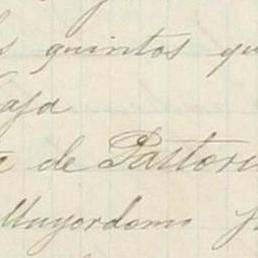 s quintos qu
Caja
de Pastori
Mayordomo